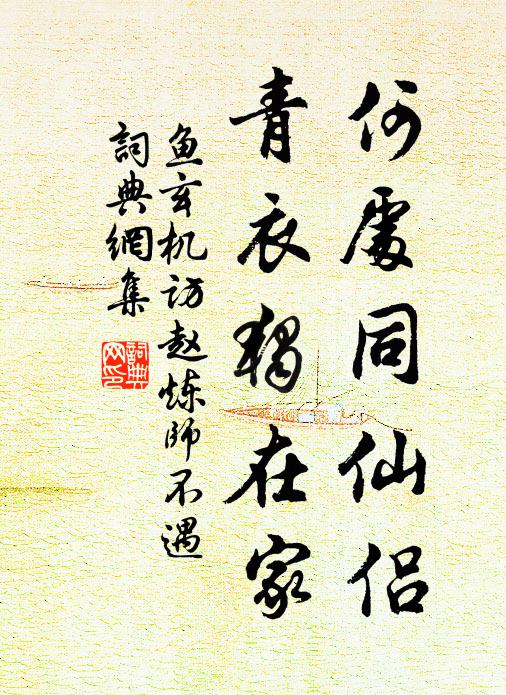 何處同仙侶
青衣獨在家
鱼玄机访赵炼师不遇
詞典網集
詞典网印